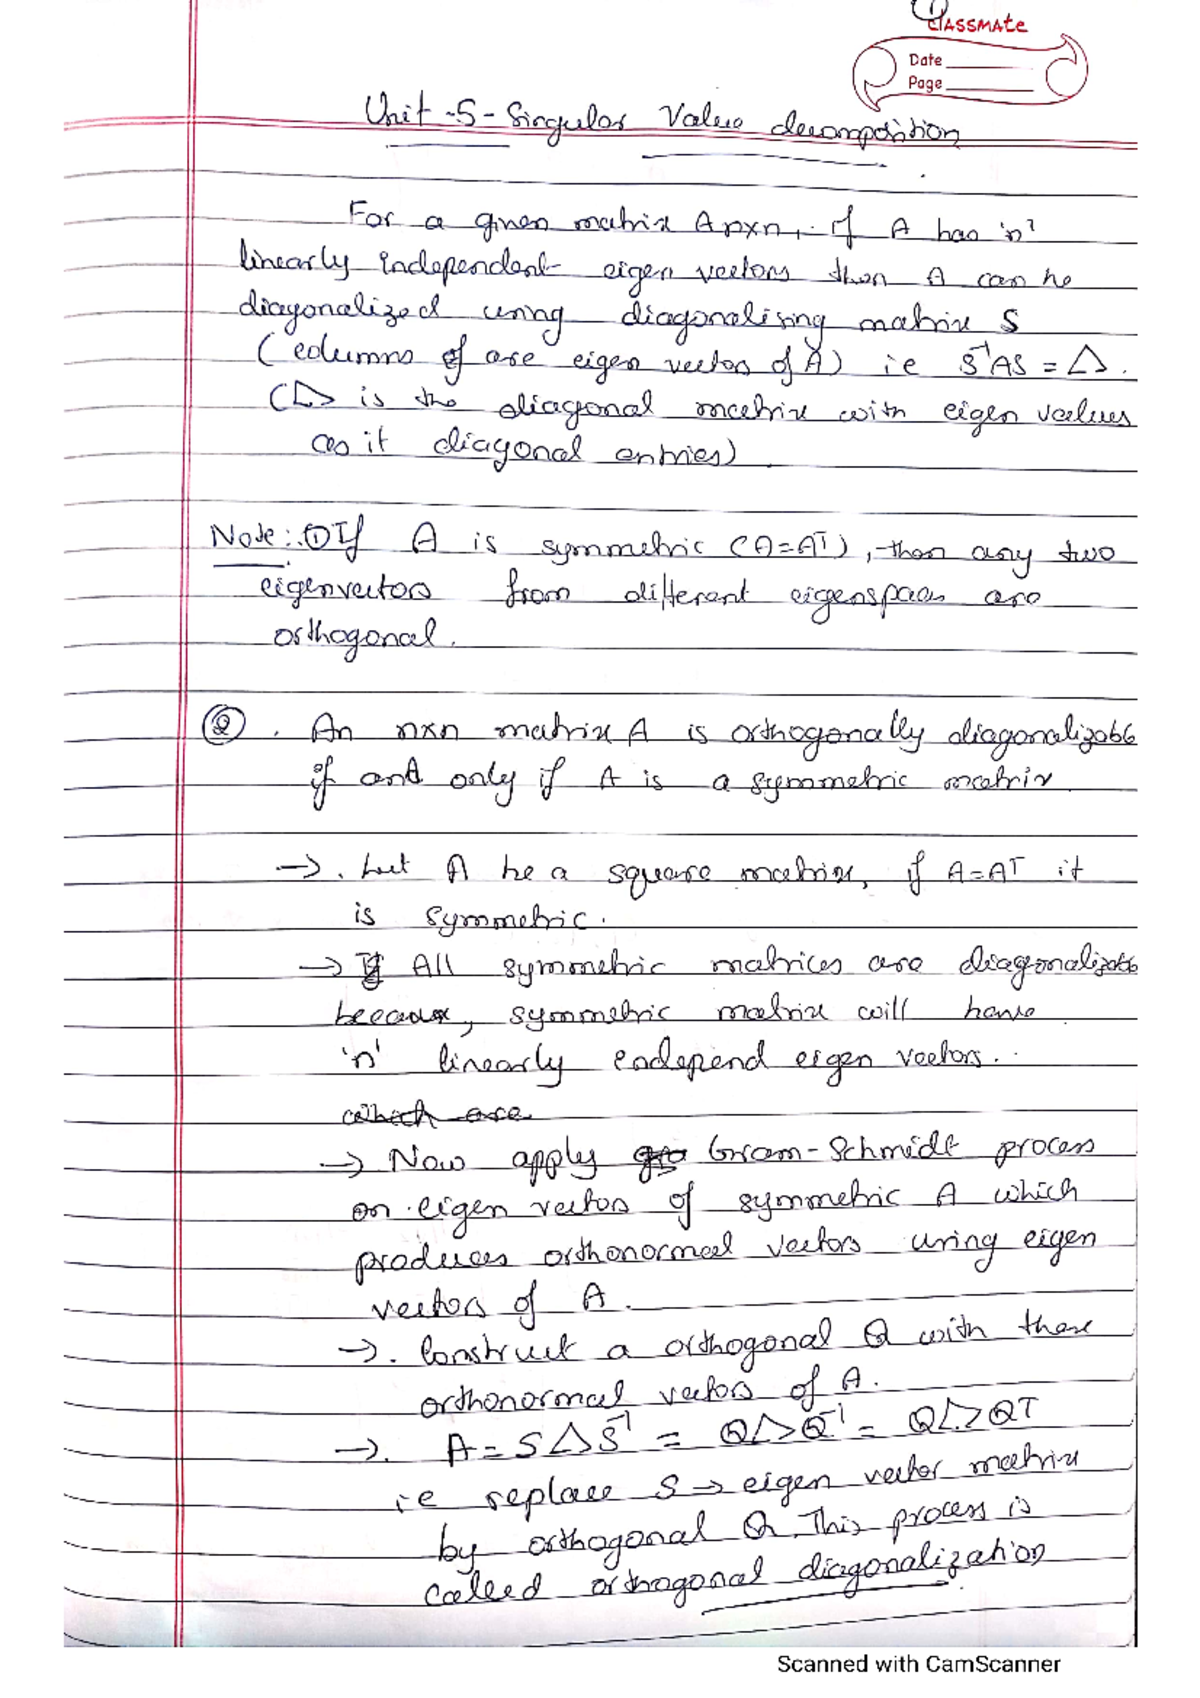 classmate
Date
Page
Unit-5- Singular Value decomposition
For a given matrix Anxn, if A has 'n'
linearly independent eigen vectors then A can be
diagonalized using diagonalising matrix S
(columns of are eigen vector of A) ie S⁻¹AS = △.
(△ is the diagonal matrix with eigen values
as it diagonal entries)
Note: ① If A is symmetric (A=Aᵀ), then any two
eigenvectors from different eigenspaces are
orthogonal.
② . An nxn matrix A is orthogonally diagonalizable
if and only if A is a symmetric matrix
→. Let A be a square matrix, if A=Aᵀ it
is symmetric.
→ All symmetric matrices are diagonalizable
because, symmetric matrix will have
'n' linearly endepend eigen vectors.
which are
→ Now apply Gram-Schmidt process
on eigen vectors of symmetric A which
produces orthonormal vectors using eigen
vectors of A.
→. Construct a orthogonal Q with these
orthonormal vectors of A.
→. A = S△S⁻¹ = Q△Q⁻¹ = Q△Qᵀ
ie replace S → eigen vector matrix
by orthogonal Q. This process is
called orthogonal diagonalization
Scanned with CamScanner